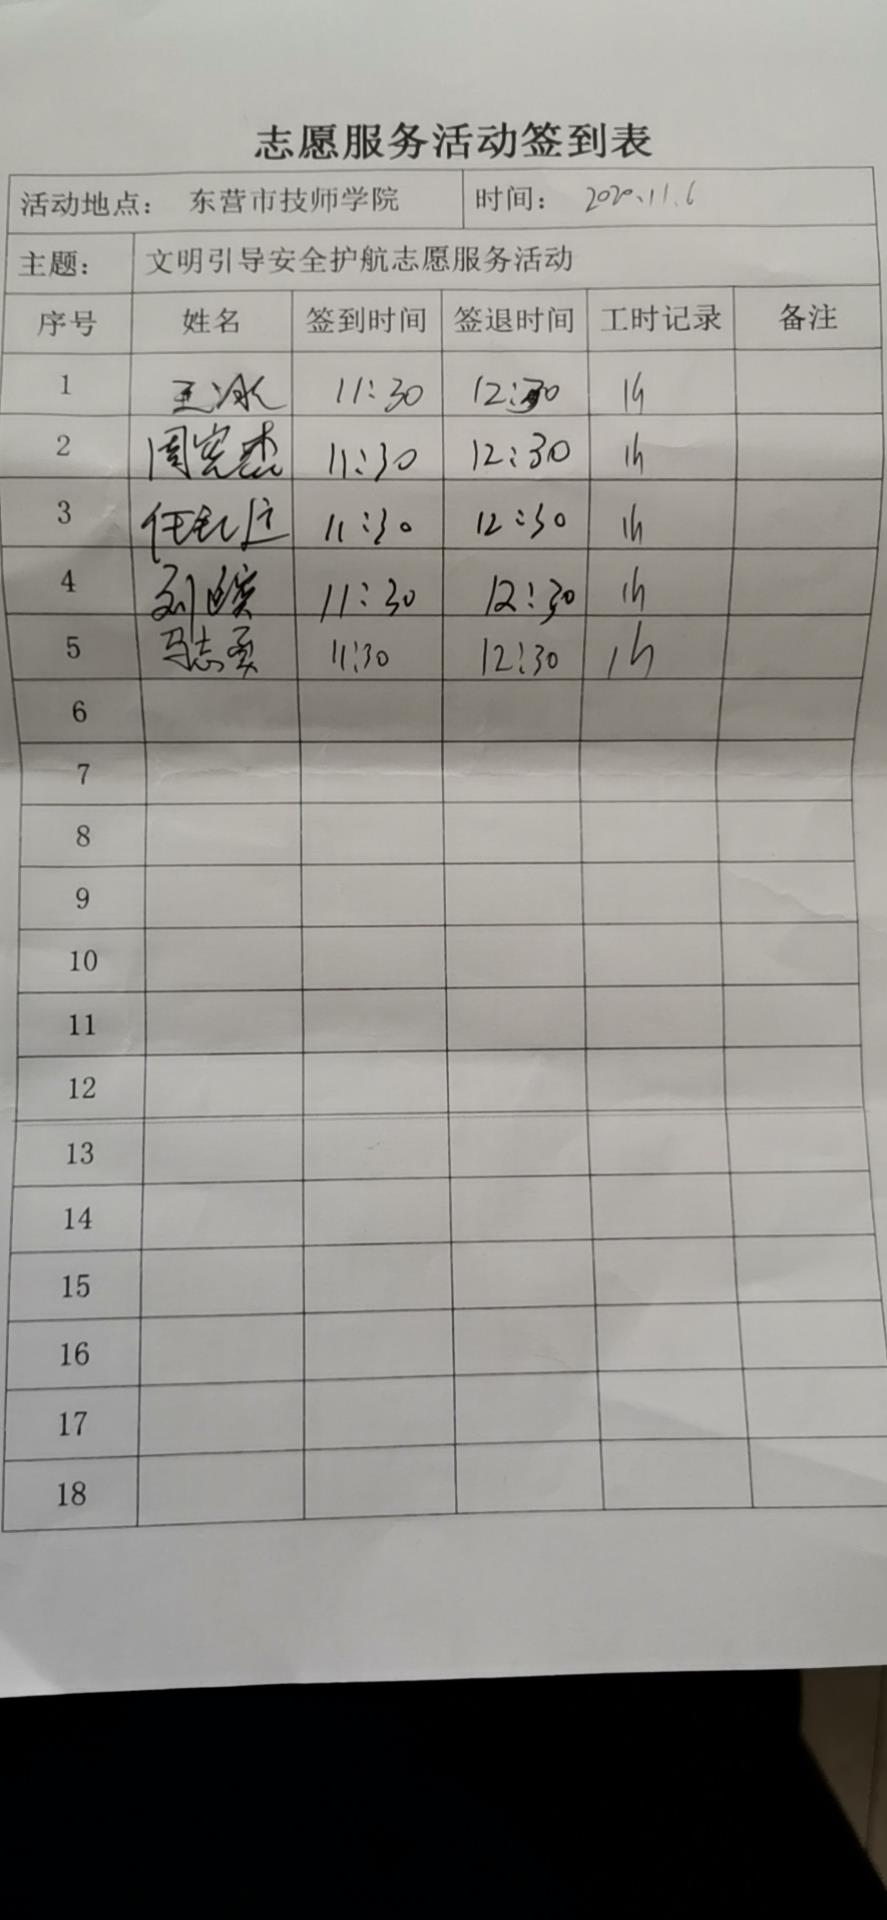 志愿服务活动签到表
活动地点： 东营市技师学院 时间： 2020.11.6
主题： 文明引导安全护航志愿服务活动
序号 姓名 签到时间 签退时间 工时记录 备注
1 王冰 11:30 12:30 1h
2 周宪杰 11:30 12:30 1h
3 任 11:30 12:30 1h
4 刘 11:30 12:30 1h
5 马志勇 11:30 12:30 1h
6
7
8
9
10
11
12
13
14
15
16
17
18